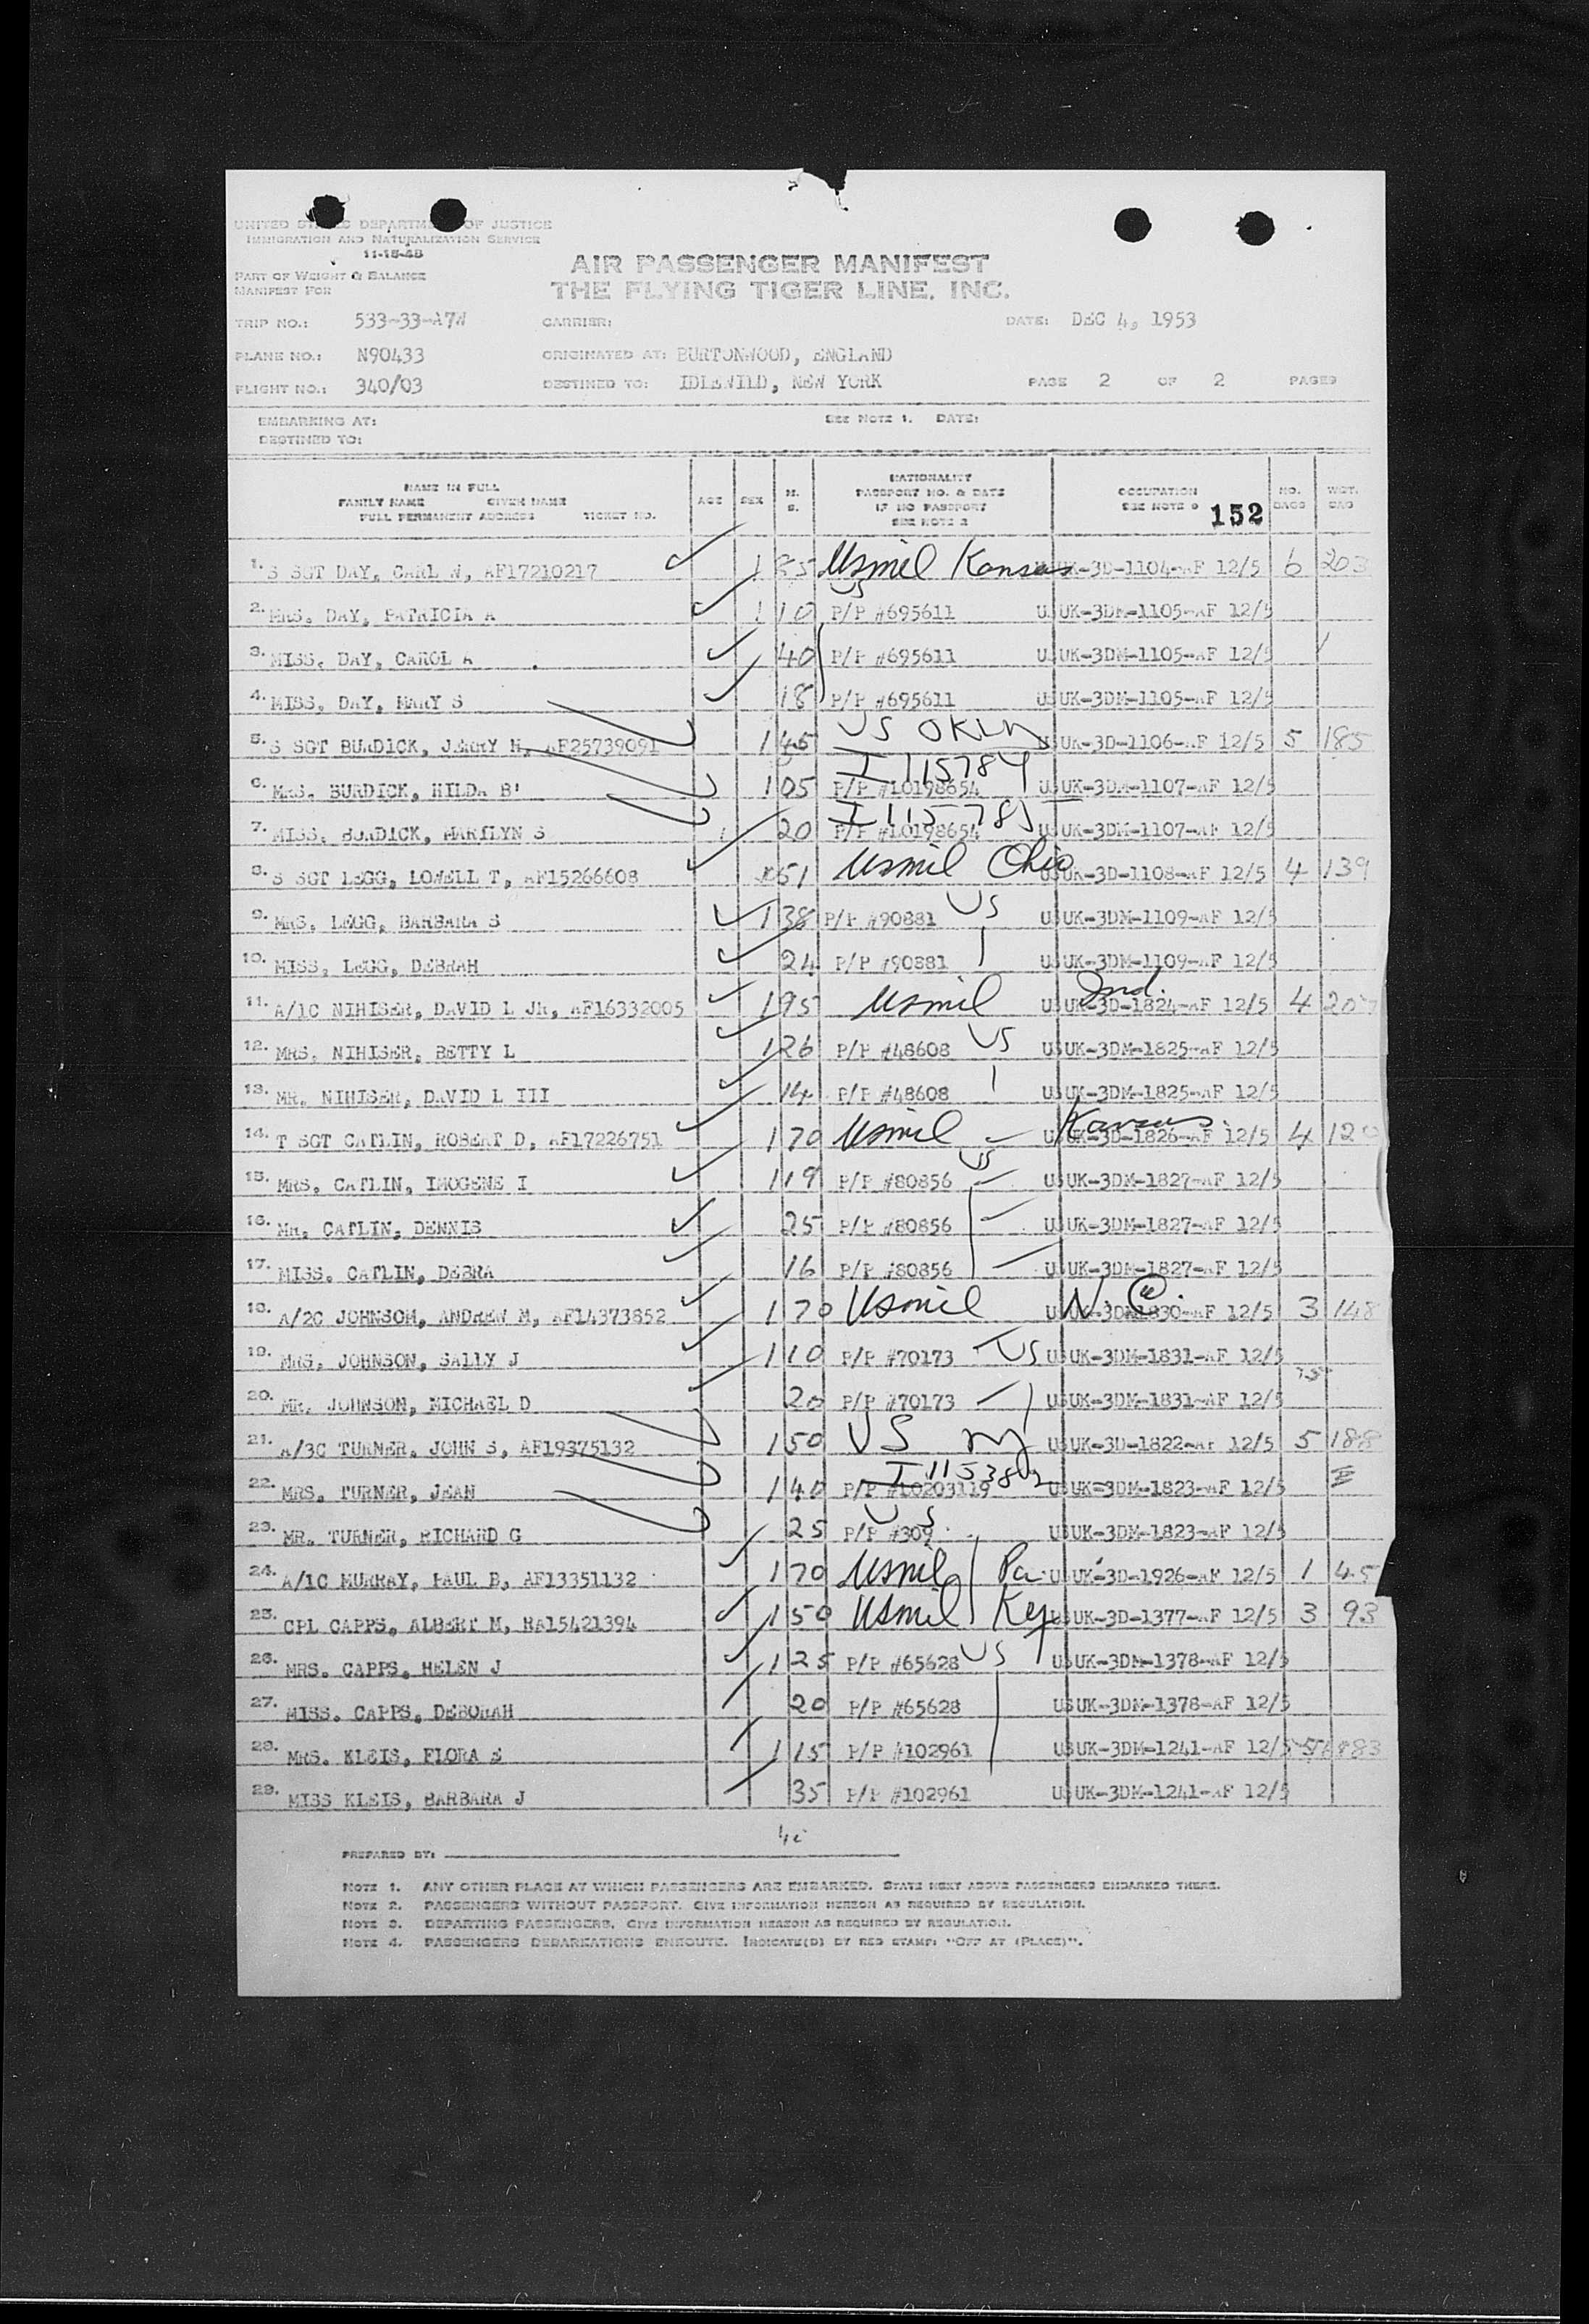 UNITED STATES DEPARTMENT OF JUSTICE
IMMIGRATION AND NATURALIZATION SERVICE
11-15-48
PART OF WEIGHT & BALANCE
MANIFEST FOR
AIR PASSENGER MANIFEST
THE FLYING TIGER LINE. INC.
TRIP NO.: 533-33-A7W CARRIER: DATE: DEC 4, 1953
PLANE NO.: N90433 ORIGINATED AT: BURTONWOOD, ENGLAND
FLIGHT NO.: 340/03 DESTINED TO: IDLEWILD, NEW YORK PAGE 2 OF 2 PAGES
EMBARKING AT: SEE NOTE 1. DATE:
DESTINED TO:
NAME IN FULL
FAMILY NAME GIVEN NAME
FULL PERMANENT ADDRESS TICKET NO.
AGE SEX M. S.
NATIONALITY
PASSPORT NO. & DATE
IF NO PASSPORT
SEE NOTE 2
OCCUPATION
SEE NOTE 3 152
NO. BAGS WGT. BAG
1. S SGT DAY, CARL W, AF17210217 185 Usmil Kansas UK-3D-1104-AF 12/5 6 203
2. MRS. DAY, PATRICIA A 110 US P/P #695611 USUK-3DM-1105-AF 12/5
3. MISS. DAY, CAROL A 40 P/P #695611 USUK-3DM-1105-AF 12/5
4. MISS. DAY, MARY S 18 P/P #695611 USUK-3DM-1105-AF 12/5
5. S SGT BURDICK, JERRY H, AF25739091 145 US OKLA USUK-3D-1106-AF 12/5 5 185
6. MRS. BURDICK, HILDA B' 105 I 115784 P/P #L0198654 USUK-3DM-1107-AF 12/5
7. MISS. BURDICK, MARILYN S 20 I 115785 P/P #L0198654 USUK-3DM-1107-AF 12/5
8. S SGT LEGG, LOWELL T, AF15266608 151 Usmil Ohio USUK-3D-1108-AF 12/5 4 139
9. MRS. LEGG, BARBARA S 138 P/P #90881 US USUK-3DM-1109-AF 12/5
10. MISS. LEGG, DEBRAH 24 P/P #90881 USUK-3DM-1109-AF 12/5
11. A/1C NIHISER, DAVID L JR, AF16332005 195 Usmil Ind. USUK-3D-1824-AF 12/5 4 207
12. MRS. NIHISER, BETTY L 126 P/P #48608 US USUK-3DM-1825-AF 12/5
13. MR. NIHISER, DAVID L III 14 P/P #48608 USUK-3DM-1825-AF 12/5
14. T SGT CATLIN, ROBERT D, AF17226751 170 Usmil Kansas USUK-3D-1826-AF 12/5 4 120
15. MRS. CATLIN, IMOGENE I 119 US P/P #80856 USUK-3DM-1827-AF 12/5
16. MR. CATLIN, DENNIS 25 P/P #80856 USUK-3DM-1827-AF 12/5
17. MISS. CATLIN, DEBRA 16 P/P #80856 USUK-3DM-1827-AF 12/5
18. A/2C JOHNSOM, ANDREW M, AF14373852 170 Usmil N.C. USUK-3DM1830-AF 12/5 3 148
19. MRS. JOHNSON, SALLY J 110 P/P #70173 US USUK-3DM-1831-AF 12/5
20. MR. JOHNSON, MICHAEL D 20 P/P #70173 USUK-3DM-1831-AF 12/5
21. A/3C TURNER, JOHN S, AF19375132 150 US USUK-3D-1822-AF 12/5 5 188
22. MRS. TURNER, JEAN 140 P/P #L0203119 USUK-3DM-1823-AF 12/5
23. MR. TURNER, RICHARD G 25 US P/P #309 USUK-3DM-1823-AF 12/5
24. A/1C MURRAY, PAUL B, AF13351132 170 Usmil Pa. USUK-3D-1926-AF 12/5 1 45
25. CPL CAPPS, ALBERT M, RA15421394 150 Usmil Ky USUK-3D-1377-AF 12/5 3 93
26. MRS. CAPPS, HELEN J 125 P/P #65628 US USUK-3DM-1378-AF 12/5
27. MISS. CAPPS, DEBORAH 20 P/P #65628 USUK-3DM-1378-AF 12/5
28. MRS. KLEIS, FLORA E 115 P/P #102961 USUK-3DM-1241-AF 12/5
29. MISS KLEIS, BARBARA J 35 P/P #102961 USUK-3DM-1241-AF 12/5
PREPARED BY:
NOTE 1. ANY OTHER PLACE AT WHICH PASSENGERS ARE EMBARKED. STATE NEXT ABOVE PASSENGERS EMBARKED THERE.
NOTE 2. PASSENGERS WITHOUT PASSPORT. GIVE INFORMATION HEREON AS REQUIRED BY REGULATION.
NOTE 3. DEPARTING PASSENGERS. GIVE INFORMATION HEREON AS REQUIRED BY REGULATION.
NOTE 4. PASSENGERS DEBARKATIONS ENROUTE. INDICATE(D) BY RED STAMP: "OFF AT (PLACE)".